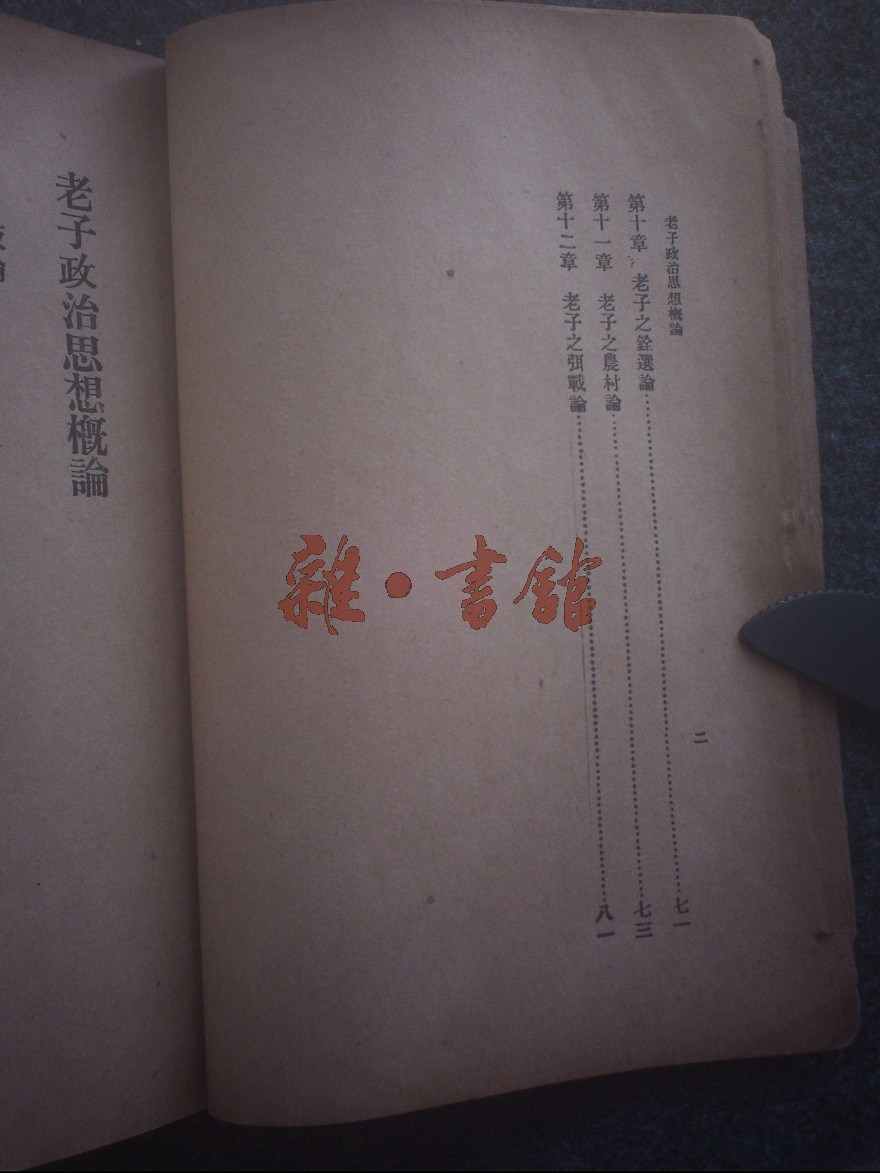 老子政治思想概論
第十章 老子之銓選論……七一
第十一章 老子之農村論……七三
第十二章 老子之弭戰論……八一
二
老子政治思想概論
論
雜·書館